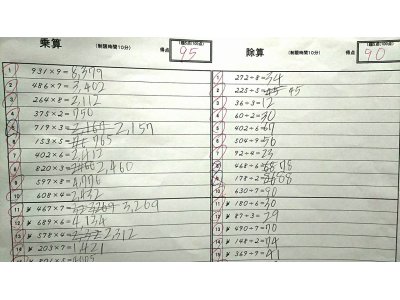 乗算
(制限時間10分)
得点
(1題5点)(100点)
95
1 931×9=8,379
2 486×7=3,402
3 264×8=2,112
4 375×2=750
5 719×3=2,157
6 153×5=765
7 402×6=2,412
8 820×3=2,460
9 597×8=4,776
10 608×4=2,432
11 ¥ 467×7=3,269
12 ¥ 689×6=4,134
13 ¥ 578×4=2,312
14 ¥ 203×7=1,421
除算
(制限時間10分)
得点
(1題5点)(100点)
90
1 272÷8=34
2 225÷5=45
3 36÷3=12
4 60÷2=30
5 402÷6=67
6 504÷9=56
7 92÷4=23
8 468÷6=78
9 178÷2=
10 630÷7=90
11 ¥ 180÷6=30
12 ¥ 87÷3=29
13 ¥ 490÷7=70
14 ¥ 148÷2=74
15 ¥ 369÷7=41